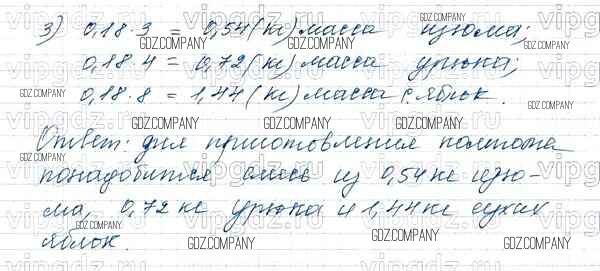 3) 0,18·3 = 0,54(кг) масса изюма;
0,18·4 = 0,72(кг) масса урюка;
0,18·8 = 1,44(кг) масса с. яблок.
Ответ: для приготовления компота
понадобится смесь из 0,54 кг изю-
ма, 0,72 кг урюка и 1,44 кг сухих
яблок.